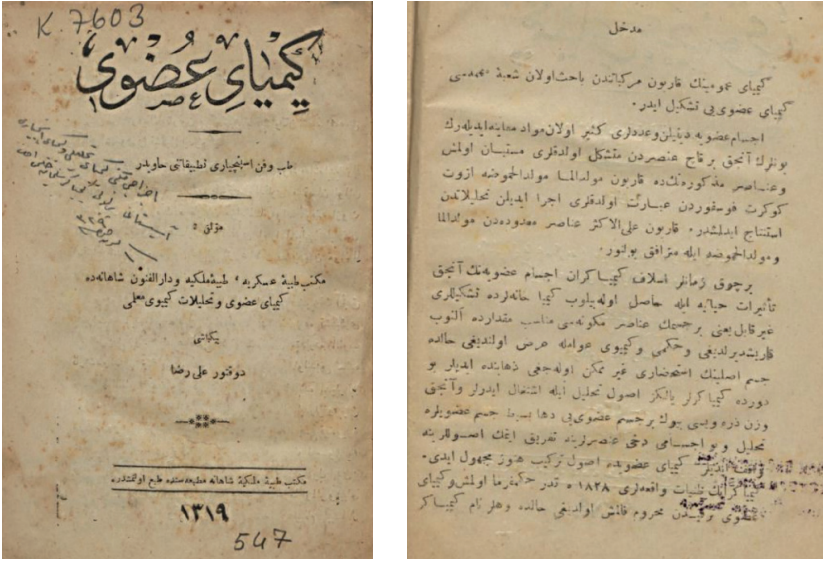 K 7603
كيمياى عضوى
طب وفن اسپنچيارى تطبيقاتنى حاويدر
مؤلفى :
مكتب طبيۀ عسكريه ، طبيۀ ملكيه و دارالفنون شاهانه‌ده
كيمياى عضوى و تحليلات كيميوى معلمى
بيكباشى
دوقتور على رضا
مكتب طبيۀ ملكيۀ شاهانه مطبعه‌سنده طبع اولنمشدر
١٣١٩
547
مدخل
كيمياى عمومينك قاربون مركباتندن باحث اولان شعبۀ مهمه‌سى
كيمياى عضوى‌يى تشكيل ايدر .
اجسام عضويه دينيلن وعددلرى كثير اولان مواد معاينه ايديله‌رك
بونلرك آنجق بر قاچ عنصردن متشكل اولدقلرى مستبان اولمش
وعناصر مذكوره‌نك‌ده قاربون مولدالما مولدالحموضه ازوت
كوكرت فوسفوردن عبارت اولدقلرى اجرا ايديلن تحليلاتدن
استنتاج ايدلمشدر . قاربون على‌الاكثر عناصر معدوده‌دن مولدالما
ومولدالحموضه ايله مترافق بولنور .
برچوق زمانلر اسلاف كيمياكران اجسام عضويه‌نك آنجق
تأثيرات حياتيه ايله حاصل اوله‌بيلوب كيميا خانه‌لرده تشكيللرى
غيرقابل يعنى برجسمك عناصر مكونه‌سى مناسب مقدارده آلنوب
قاريشديرلديغى وحكمى وكيميوى عوامله عرض اولنديغى حالده
جسم اصلينك استحضارى غير ممكن اوله‌جغى ذهابنده ايديلر بو
دورده كيمياكرلر يالكز اصول تحليل ايله اشتغال ايدرلر وآنجق
وزن ذره‌ويسى بيوك برجسم عضوى‌يى دها بسيط جسم عضويلره
تحليل و بو اجسامى دخى عنصرلرينه تفريق ايتمك اصوللرينه
واقف ايديلر كيمياى عضويده اصول تركيب هنوز مجهول ايدى .
كيمياكرانك ظنيات واقعه‌لرى ١٨٢٨ ه قدر حكمفرما اولمش وكيمياى
عضوى محروم قالمش اولديغى حالده وهلر نام كيمياكر